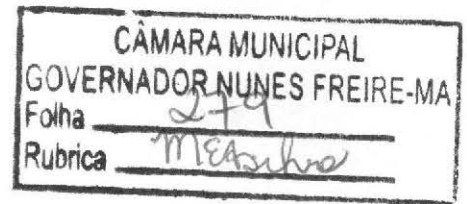 CÂMARA MUNICIPAL
GOVERNADOR NUNES FREIRE-MA
Folha 279
Rubrica MEASilva